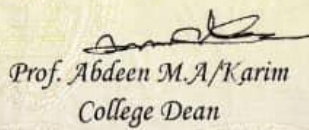 Prof. Abdeen M.A/Karim
College Dean